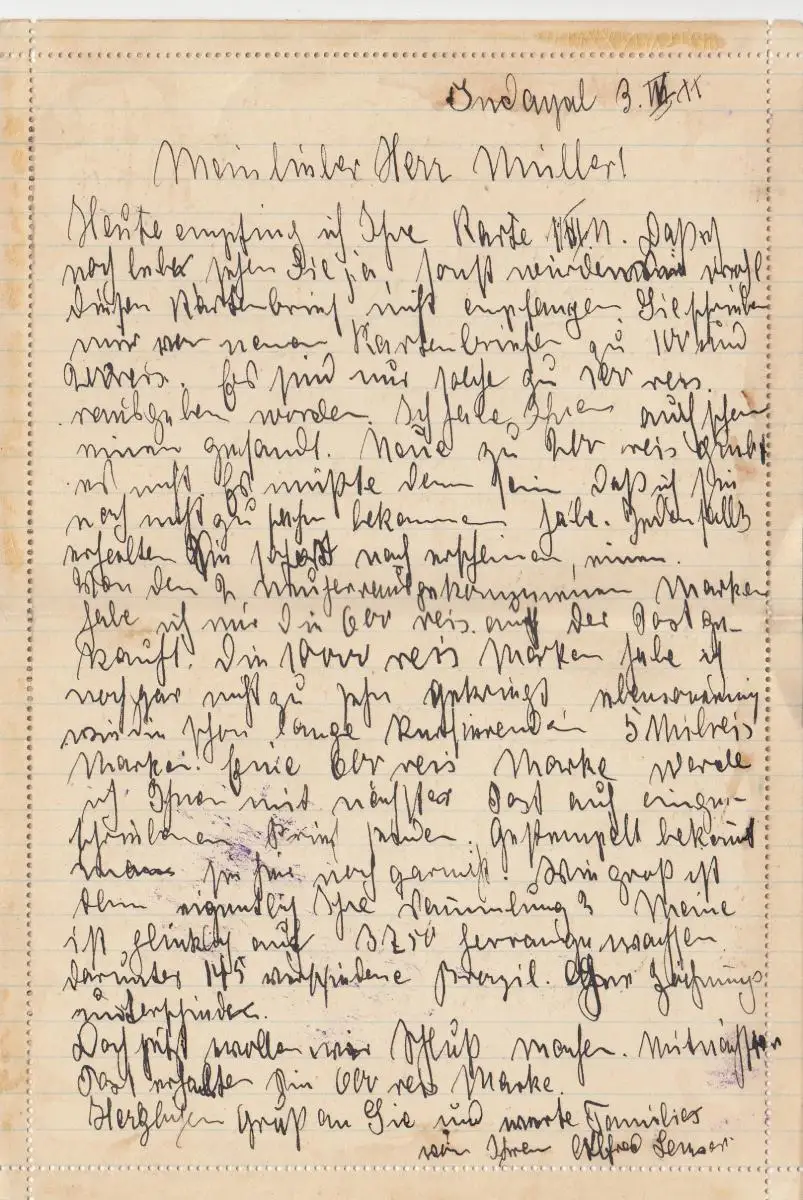 Indayal 3. VII
Mein lieber Herr Müller!
Heute empfing ich Ihre Karte Daß ich
noch lebe sehen Sie ja, sonst würden Sie wohl
diesen Kartenbrief nicht empfangen. Sie schreiben
mir von neuen Kartenbriefen zu 100 und
200 reis. Es sind nur solche zu 100 reis.
rausgeben worden. Ich habe Ihnen auch schon
einen gesandt. Neue zu 200 reis giebt
es nicht. Es müßte denn sein daß ich sie
noch nicht zu sehn bekommen habe. Jedenfalls
erhalten Sie sofort nach erscheinen, einen.
Von den 2 neuherrausgekommenen Marken
habe ich mir die 600 reis. auf der Post ge-
kauft. Die 10000 reis Marken habe ich
noch gar nicht zu sehn gekriegt, ebensowenig
wie die schon lange kursirenden 5 Milreis
Marken. Eine 600 reis Marke werde
ich Ihnen mit nächster Post auf einge-
schriebenen Brief senden. Gestempelt bekomt
man sie hier noch garnicht. Wie groß ist
denn eigentlich Ihre Sammlung? Meine
ist glücklich auf 3750 herrangewachsen
darunter 145 verschiedene Brazil. Ohne Zähnungs
unterschiede.
Doch jetzt wollen wir Schluß machen. Mit nächster
Post erhalten Sie 600 reis Marke.
Herzlichen Gruß an Sie und werte Familie
von Ihren Alfred